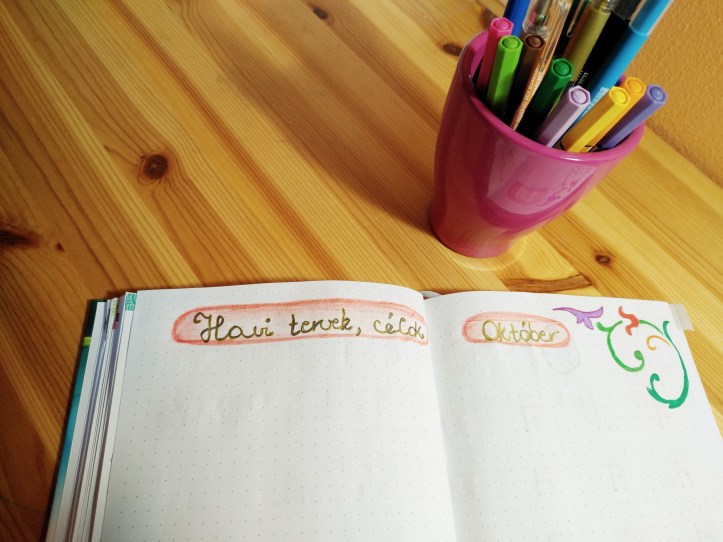 Havi tervek, célok
Október